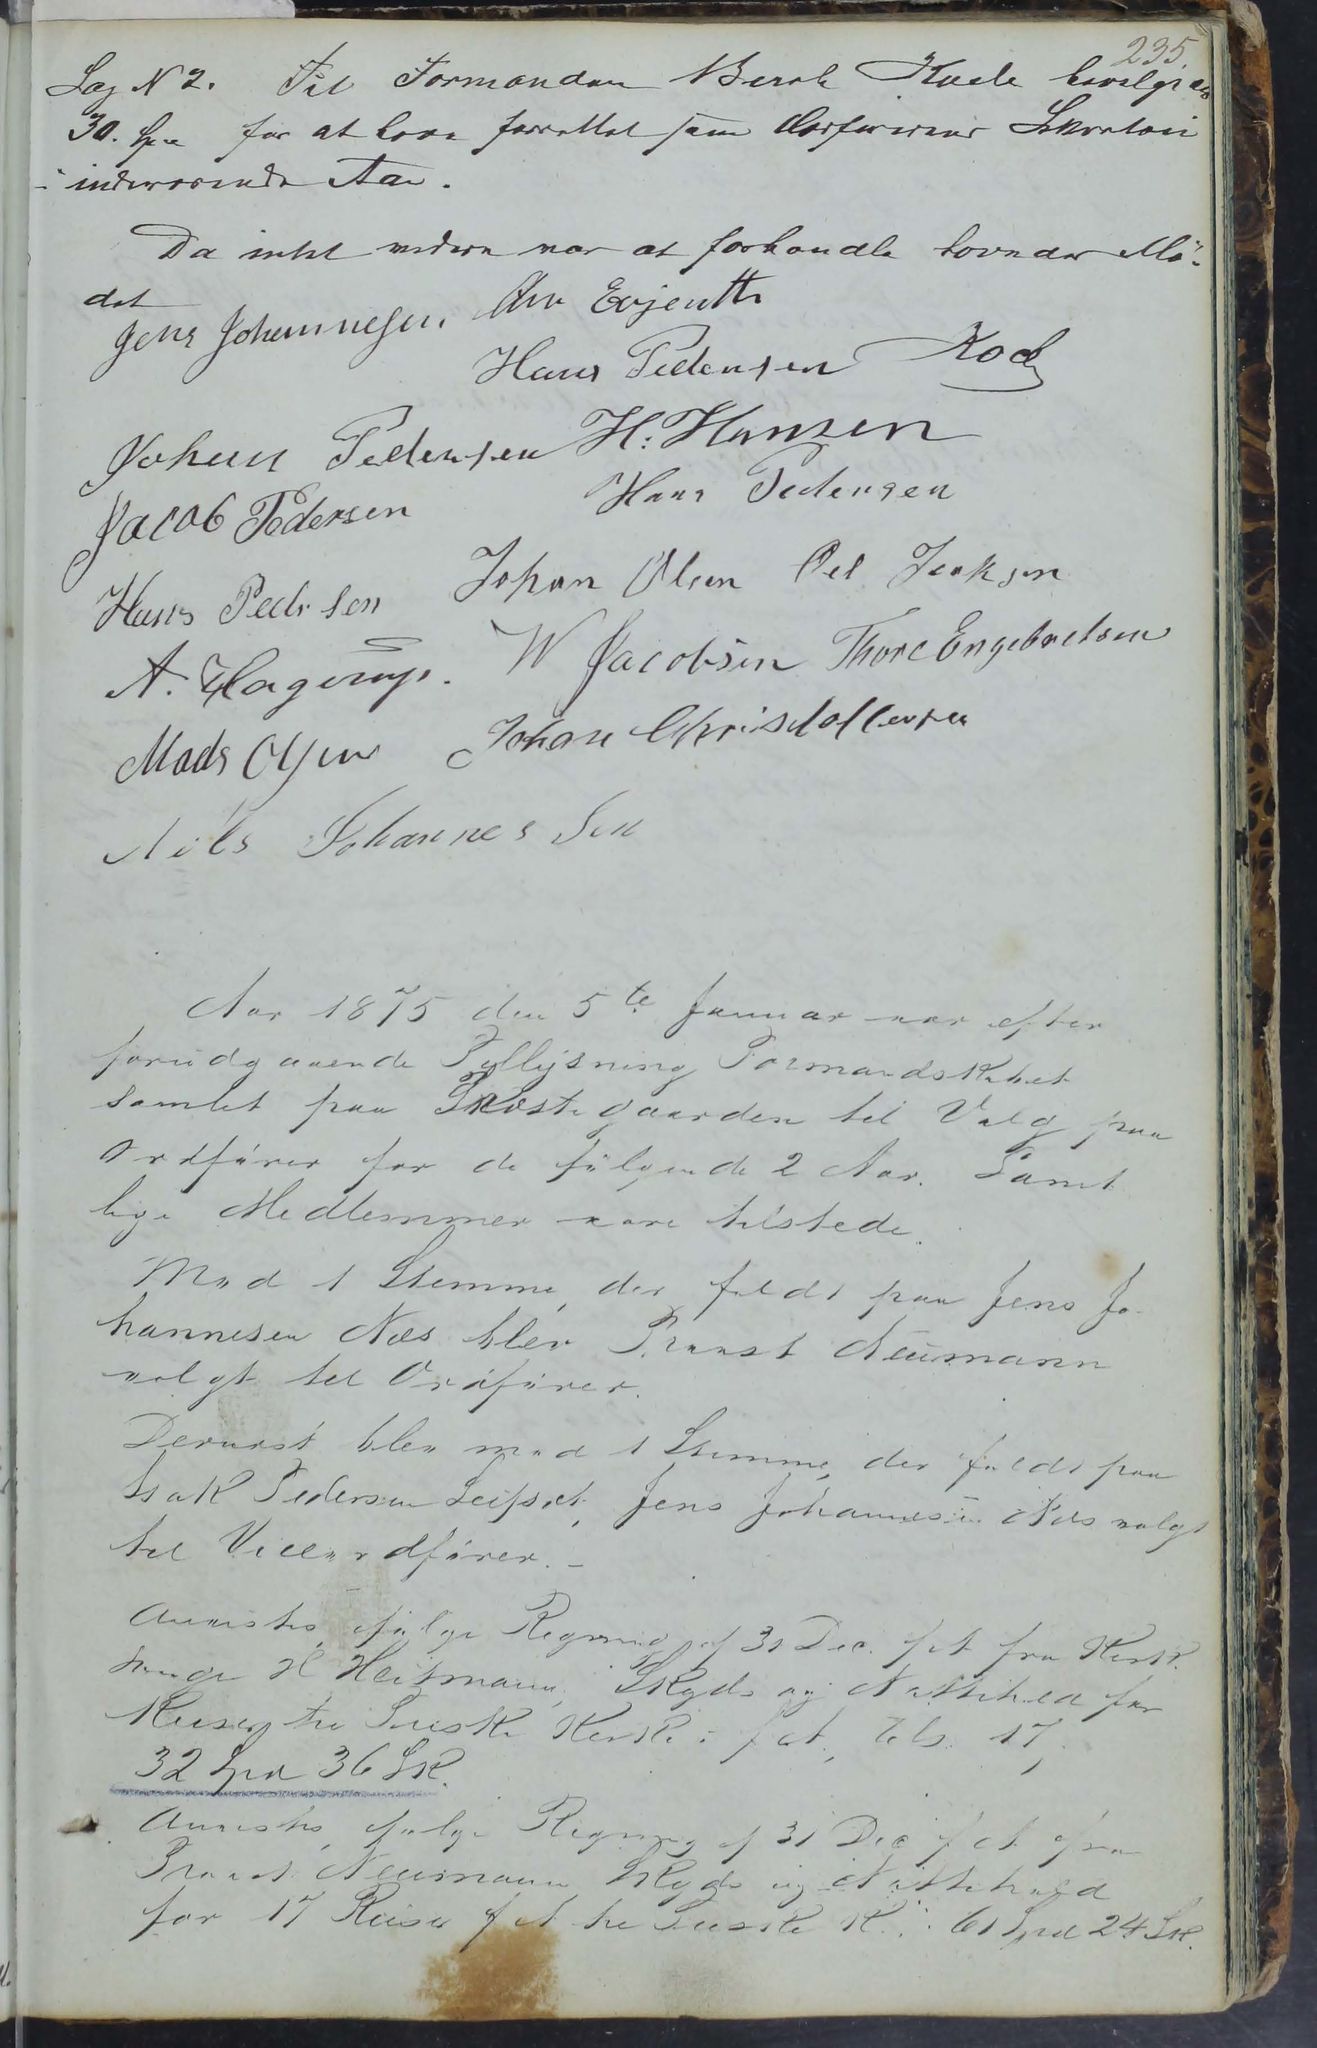 235.
Sag N 2. Til Formanden Bernt Koch bevilges
30. Spd for at have forrettet som Ordførerens Sekretær
i indeværende Aar.
Da intet videre var at forhandle hævedes Mö-
det
Jens Johannesen. Chr Evjenth
Hans Pedersen Koch
Johan Pedersen H: Hansen
Jacob Pedersen Hans Pedersen
Hans Pedersen Johan Olsen Ole Isaksen
A. Hagerup. W Jacobsen Thore Engebretsen
Mads Olsen Johan Christoffersen
Nils Johannessen
Aar 1875 den 5te Januar var efter
forudgaaende Tillysning Formandskabet
samlet paa Præstegaarden til Valg paa
Ordförer for de fölgende 2 Aar. Samt
lige Medlemmer vare tilstede.
Mod 1 Stemme, der faldt paa Jens Jo-
hannesen Næs blev Provst Neumann
valgt til Ordförer.
Dernæst blev mod 1 Stemme, der faldt paa
Isak Pedersen Leifset, Jens Johannesen Næs valgt
til Viceordförer. -
Anvistes ifölge Regning af 31 Dec. f A fra Kirke
sanger H Heitmann, Skyds og Nattehold for
Reiser til Kirke i f A, 17,
32 Spd 36 Sk.
Anvistes ifölge Regning af 31 Dec f A fra
Provst Neumann Skyds og Natthold
for 17 Reiser f A til K.: 61 Spd 24 Sk.